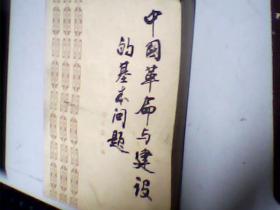 中国革命与建设
的基本问题